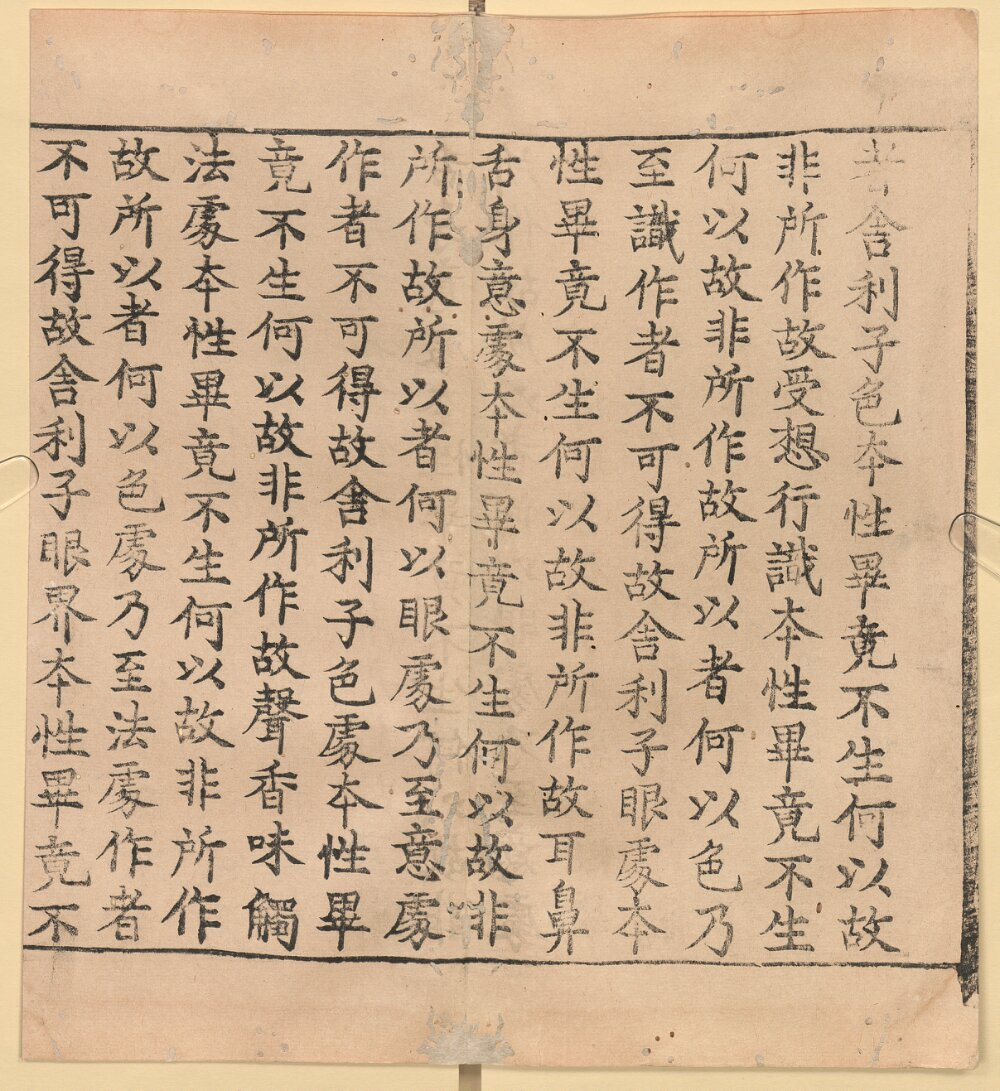 者舍利子色本性畢竟不生何以故
非所作故受想行識本性畢竟不生
何以故非所作故所以者何以色乃
至識作者不可得故舍利子眼處本
性畢竟不生何以故非所作故耳鼻
舌身意處本性畢竟不生何以故非
所作故所以者何以眼處乃至意處
作者不可得故舍利子色處本性畢
竟不生何以故非所作故聲香味觸
法處本性畢竟不生何以故非所作
故所以者何以色處乃至法處作者
不可得故舍利子眼界本性畢竟不